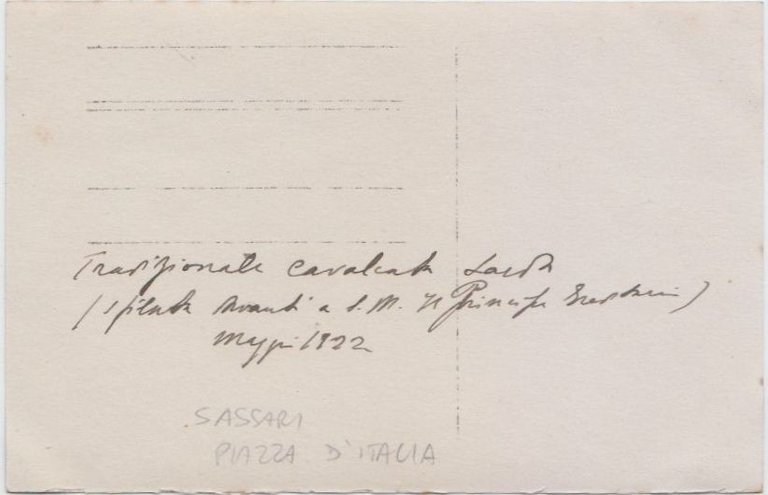 Tradizionale cavalcata sarda
(sfilata avanti a S.M. Il Principe Ereditario)
Maggio 1922
SASSARI
PIAZZA D'ITALIA